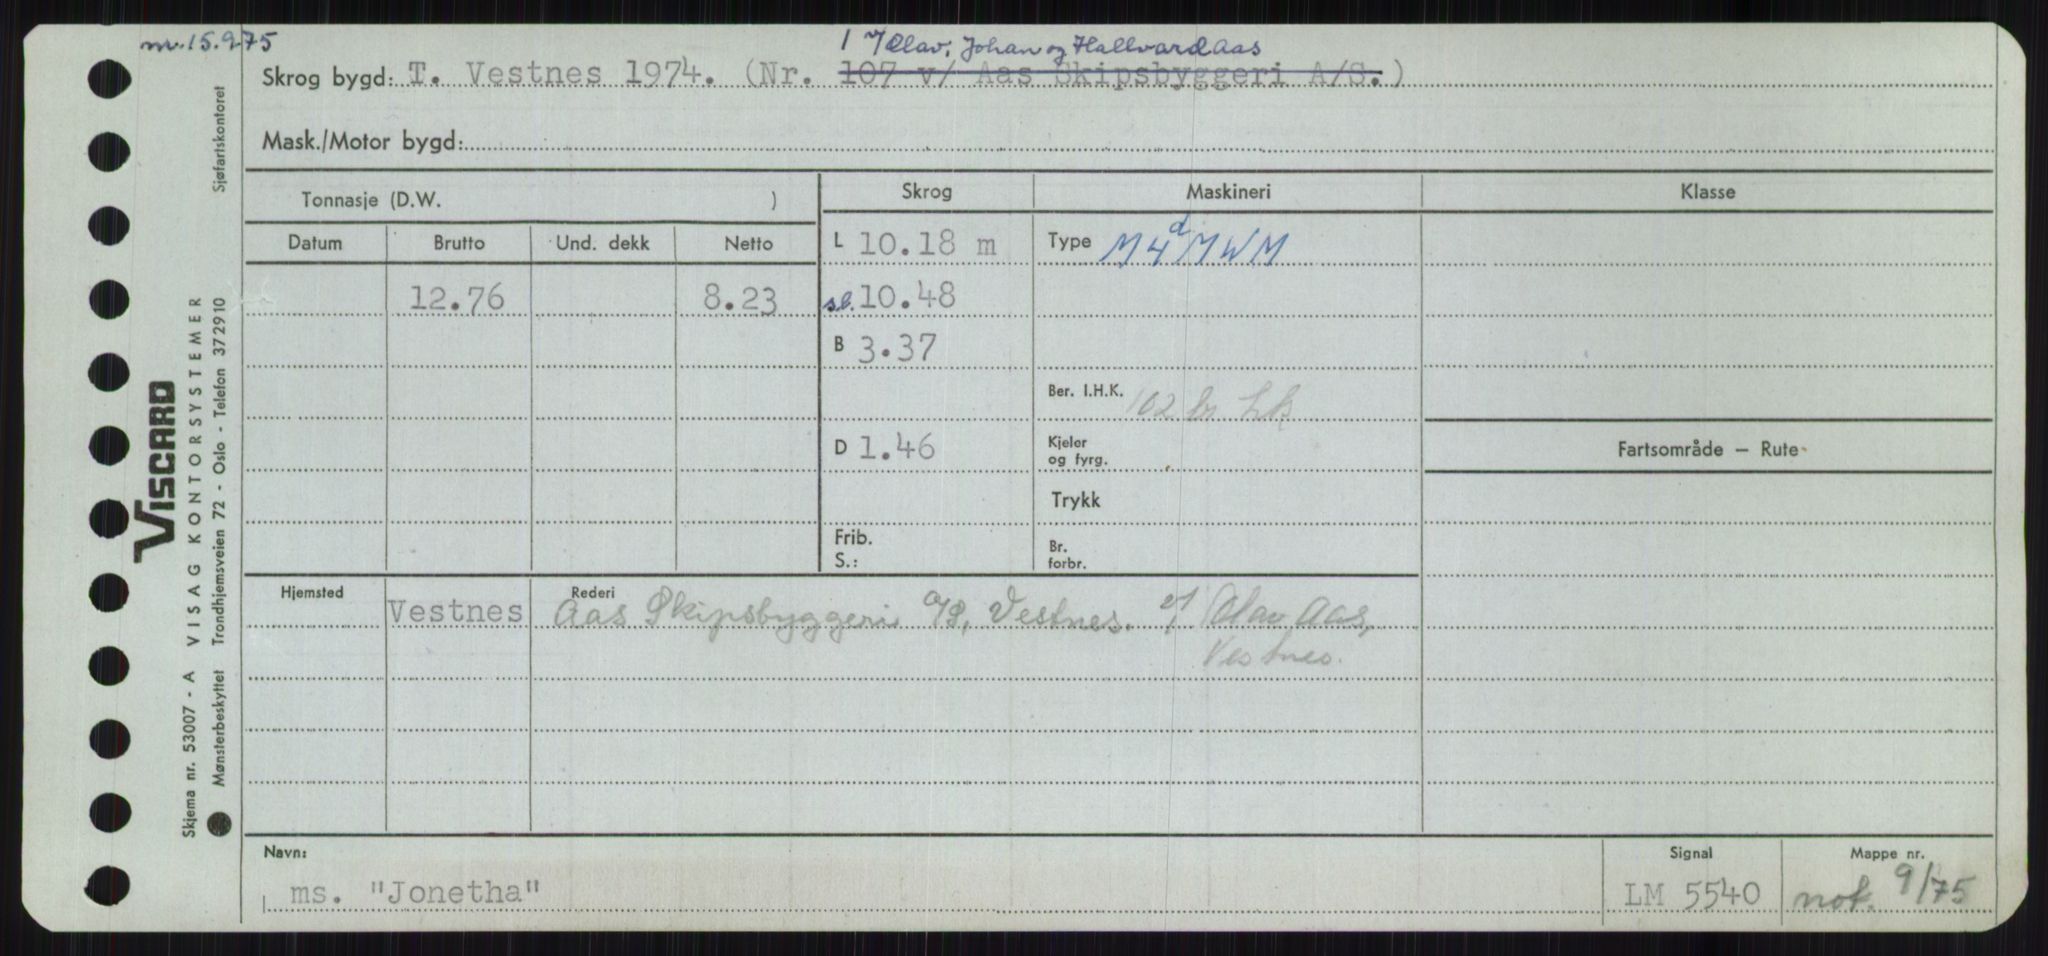 nv. 15.9.75
1 v/ Olav, Johan og Hallvard Aas
Skrog bygd: T. Vestnes 1974. (Nr. 107 v/ Aas Skipsbyggeri A/S.)
Mask./Motor bygd:
Tonnasje (D.W. )
Skrog
Maskineri
Klasse
Datum
Brutto
Und. dekk
Netto
L 10.18 m
Type M 4d MWM
12.76
8.23
sl. 10.48
B 3.37
Ber. I.H.K. 102 br hk
D 1.46
Kjeler
og fyrg.
Fartsområde — Rute
Trykk
Frib.
S.:
Br.
forbr.
Hjemsted
Vestnes
Rederi
Aas Skipsbyggeri A/S, Vestnes. v/ Olav Aas,
Vestnes.
Navn:
ms. "Jonetha"
Signal
LM 5540
Mappe nr.
not. 9/75
VISCARD
Skjema nr. 53007 - A VISAG KONTORSYSTEMER
Mønsterbeskyttet Trondhjemsveien 72 - Oslo - Telefon 372910 Sjøfartskontoret